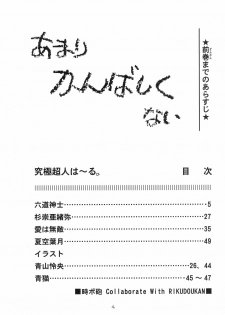 ★前巻までのあらすじ★
あまり
かんばしく
ない
究極超人は～る。 目 次
六道神士 5
杉崇亜緒弥 27
愛は無敵 35
夏空葉月 49
イラスト
青山怜央 26、44
青猫 45～47
■時ボ砲 Collaborate With RIKUDOUKAN■
4